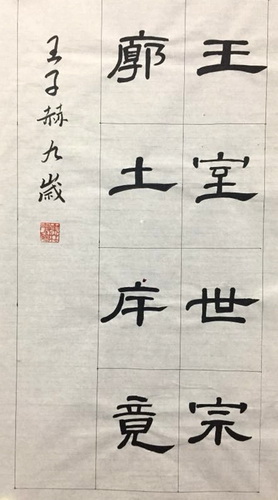 王室世宗
廓土斥竟
王子赫九歲